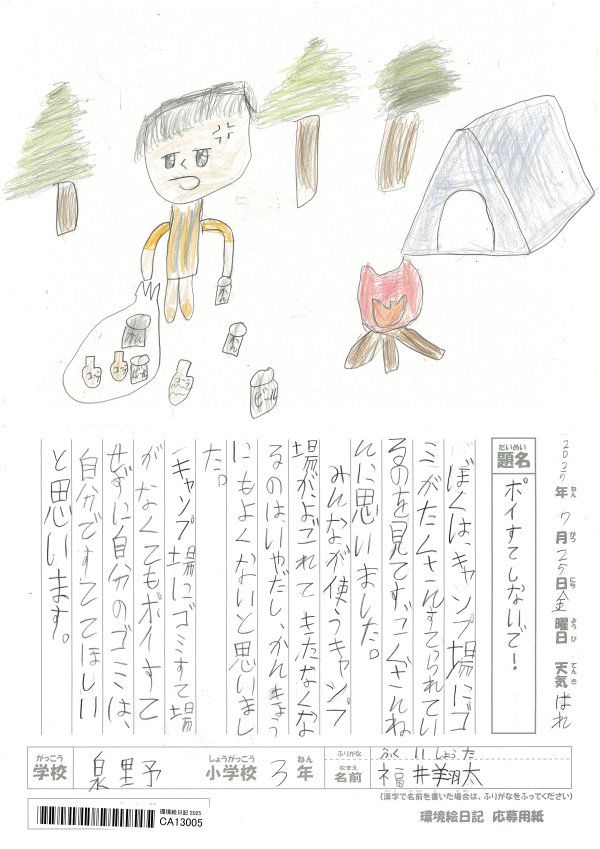 かん
かん
かん
コーラ
コーラ
ビール
2025年ねん 7月がつ 25日にち 金曜日ようび 天気てんき はれ
題名だいめい ポイすてしないで!
ぼくは、キャンプ場にゴ
ミがたくさんすてられてい
るのを見てすごくざんね
んに思いました。
みんなが使うキャンプ
場が、よごれて きたなくな
るのは、いやだし、かんきょう
にもよくないと思いまし
た。
キャンプ場にゴミすて場
がなくてもポイすて
せずに自分のゴミは、
自分ですててほしい
と思います。
がっこう しょうがっこう ねん ふりがな ふくい しょうた
学校 泉野 小学校 3年 なまえ 名前 福井翔太
(漢字で名前を書いた場合は、ふりがなをふってください)
環境絵日記 2025
CA13005
環境絵日記 応募用紙